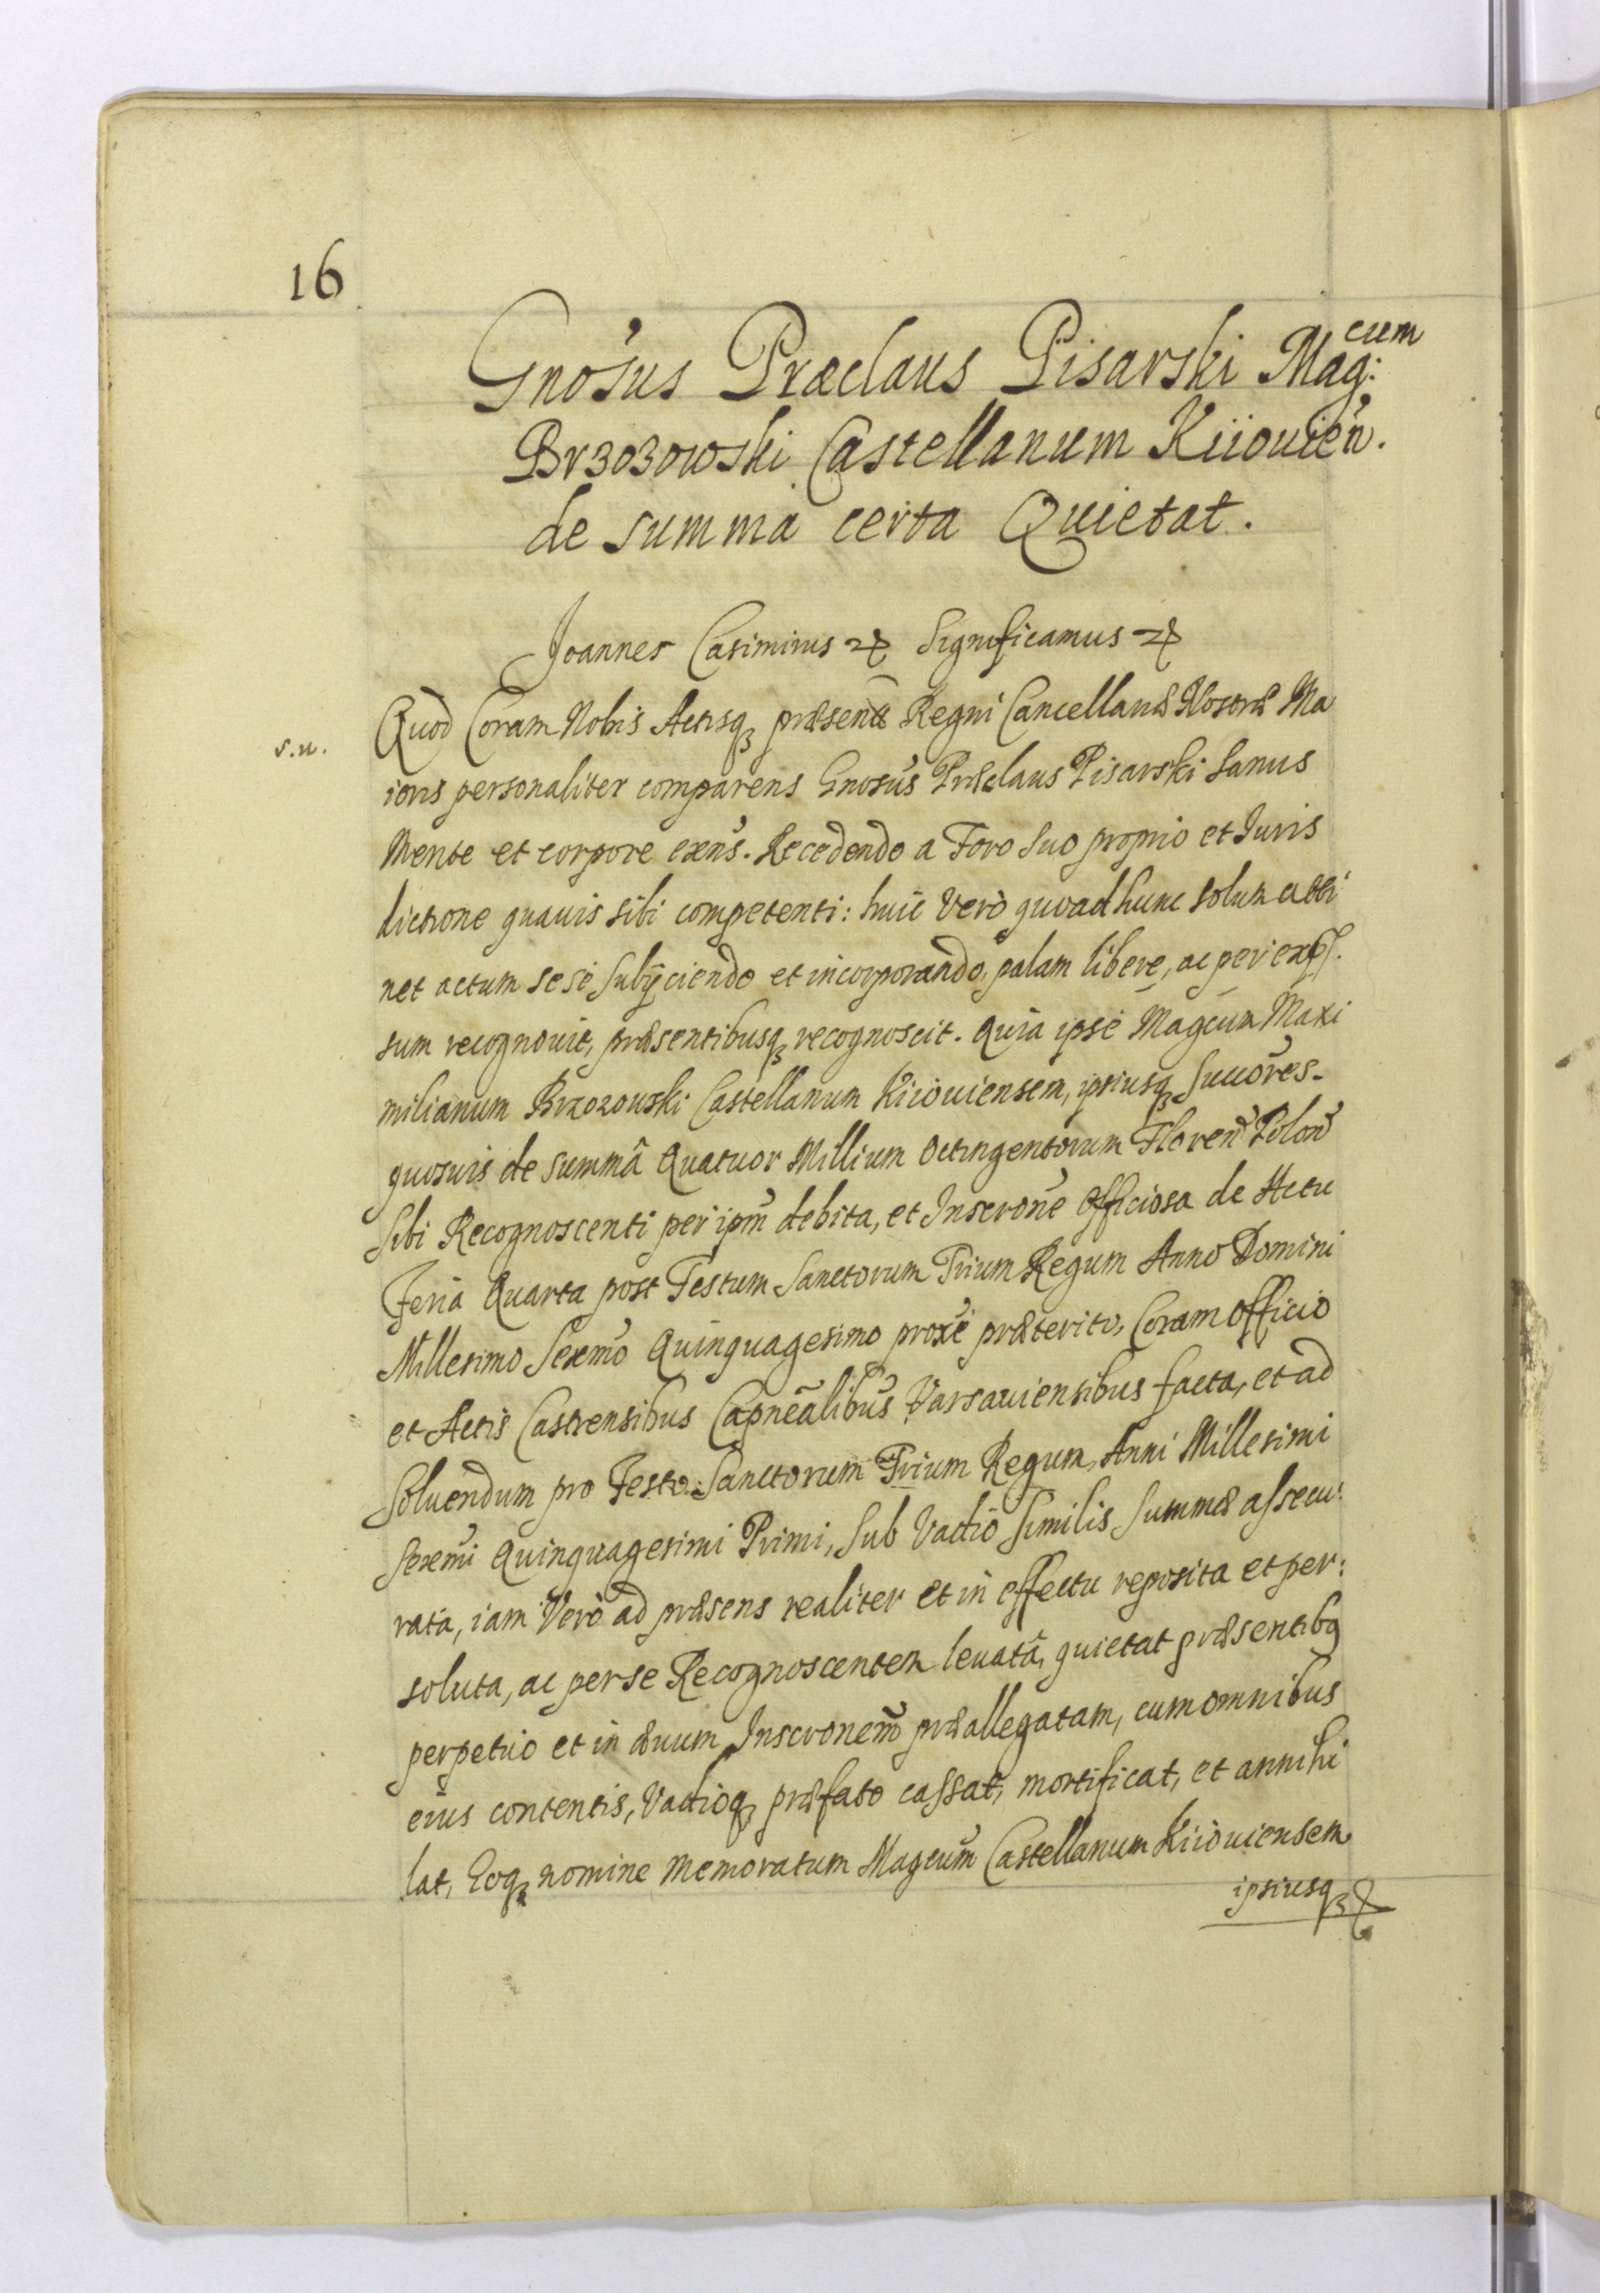 16
Gnosus Præclaus Pisarski Mag:cum
Brzozowski Castellanum Kiiouien.
de summa certa Quietat.
Joannes Casimirus etc Significamus etc
s.u.
Quod Coram Nobis Actisq præsentt Regni Cancellariæ Nostræ Ma
ioris personaliter comparens Gnosus Præclaus Pisarski sanus
Mente et corpore exns. Recedendo a Foro suo proprio et Juris
dictione quauis sibi competenti: huic vero quoad hunc solum atti
net actum sese subyciendo et incorporando, palam libere, ac per exps.
sum recognouit, præsentibusq recognoscit. Quia ipse Magcum Maxi
milianum Brzozowski Castellanum Kiiouiensem, ipsiusq Succores
quosuis de summâ Quatuor Millium Octingentorum Floren Polon
sibi Recognoscenti per ipm debita, et Inscrone Officiosa de Actu
Feria Quarta post Festum Sanctorum Trium Regum Anno Domini
Millesimo Sexmo Quinquagesimo proxe præterito, Coram officio
et Actis Castrensibus Capnealibus Varsauiensibus facta, et ad
soluendum pro Festo Sanctorum Trium Regum, Anni Millesimi
Sexmi Quinquagesimi Primi, sub Vadio similis summæ assecu:
rata, iam Vero ad præsens realiter et in effectu reposita et per:
soluta, ac per se Recognoscentem leuatâ, quietat præsentibq
perpetuo et in æuum Inscronemq præallegatam, cum omnibus
eius contentis, Vadioq præfato cassat, mortificat, et annihi
lat, Eoq nomine memoratum Magcum Castellanum Kiiouiensem
ipsiusq